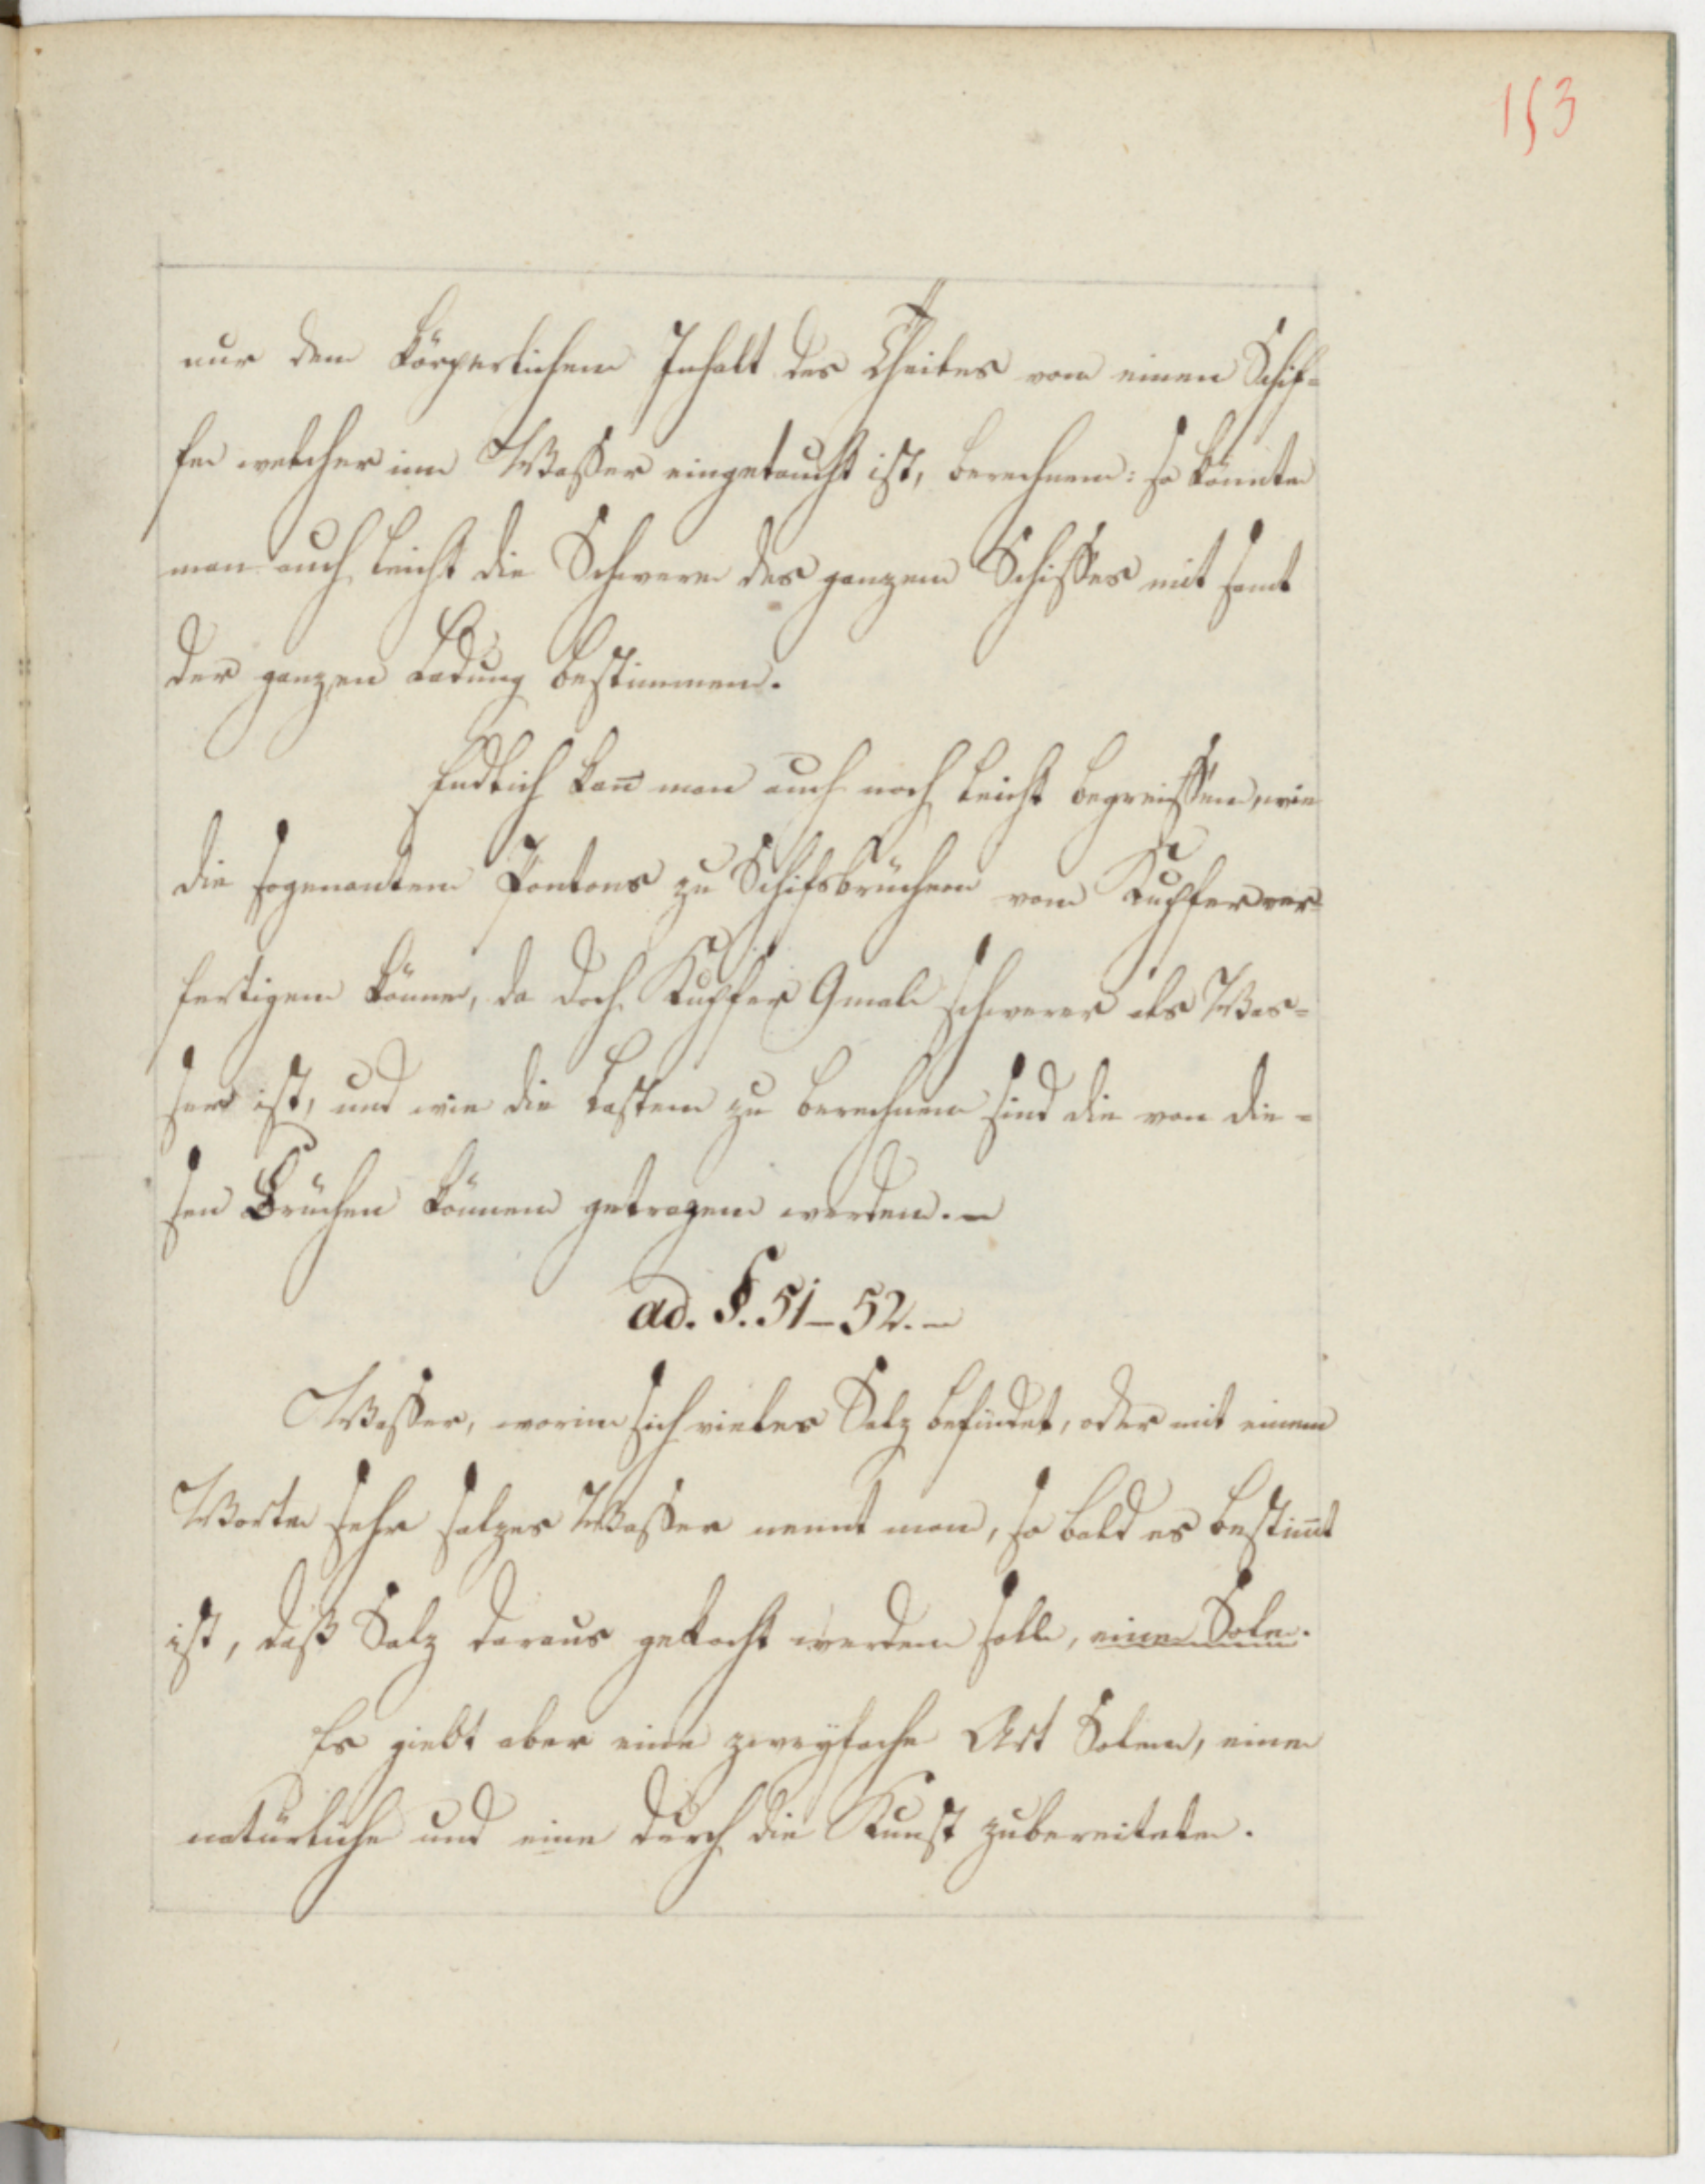 153
nur den körperlichen Inhalt des Theiles von einen Schif=
fe welcher im Waßer eingetaucht ist, berechnen: so könnte
man auch leicht die Schwere des ganzen Schiffes mit samt
der ganzen Ladung bestimmen.
Endlich kan̄ man auch noch leicht begreiffen, wie
die sogenanten Pontons zu Schifsbrücken von Kupfer ver=
fertigen könne, da doch Kupfer 9mal schwerer als Was=
ser ist, und wie die Lasten zu berechnen sind die von die=
sen Brücken können getragen werden.–
ad. §. 51–52.–
Waßer, worin sich vieles Salz befindet, oder mit einem
Worte sehr salzes Waßer nennt man, so bald es bestim̄t
ist, daß Salz daraus gekocht werden solle, eine Sole.
Es giebt aber eine zweyfache Art Solen, eine
natürliche und eine durch die Kunst zubereitete.